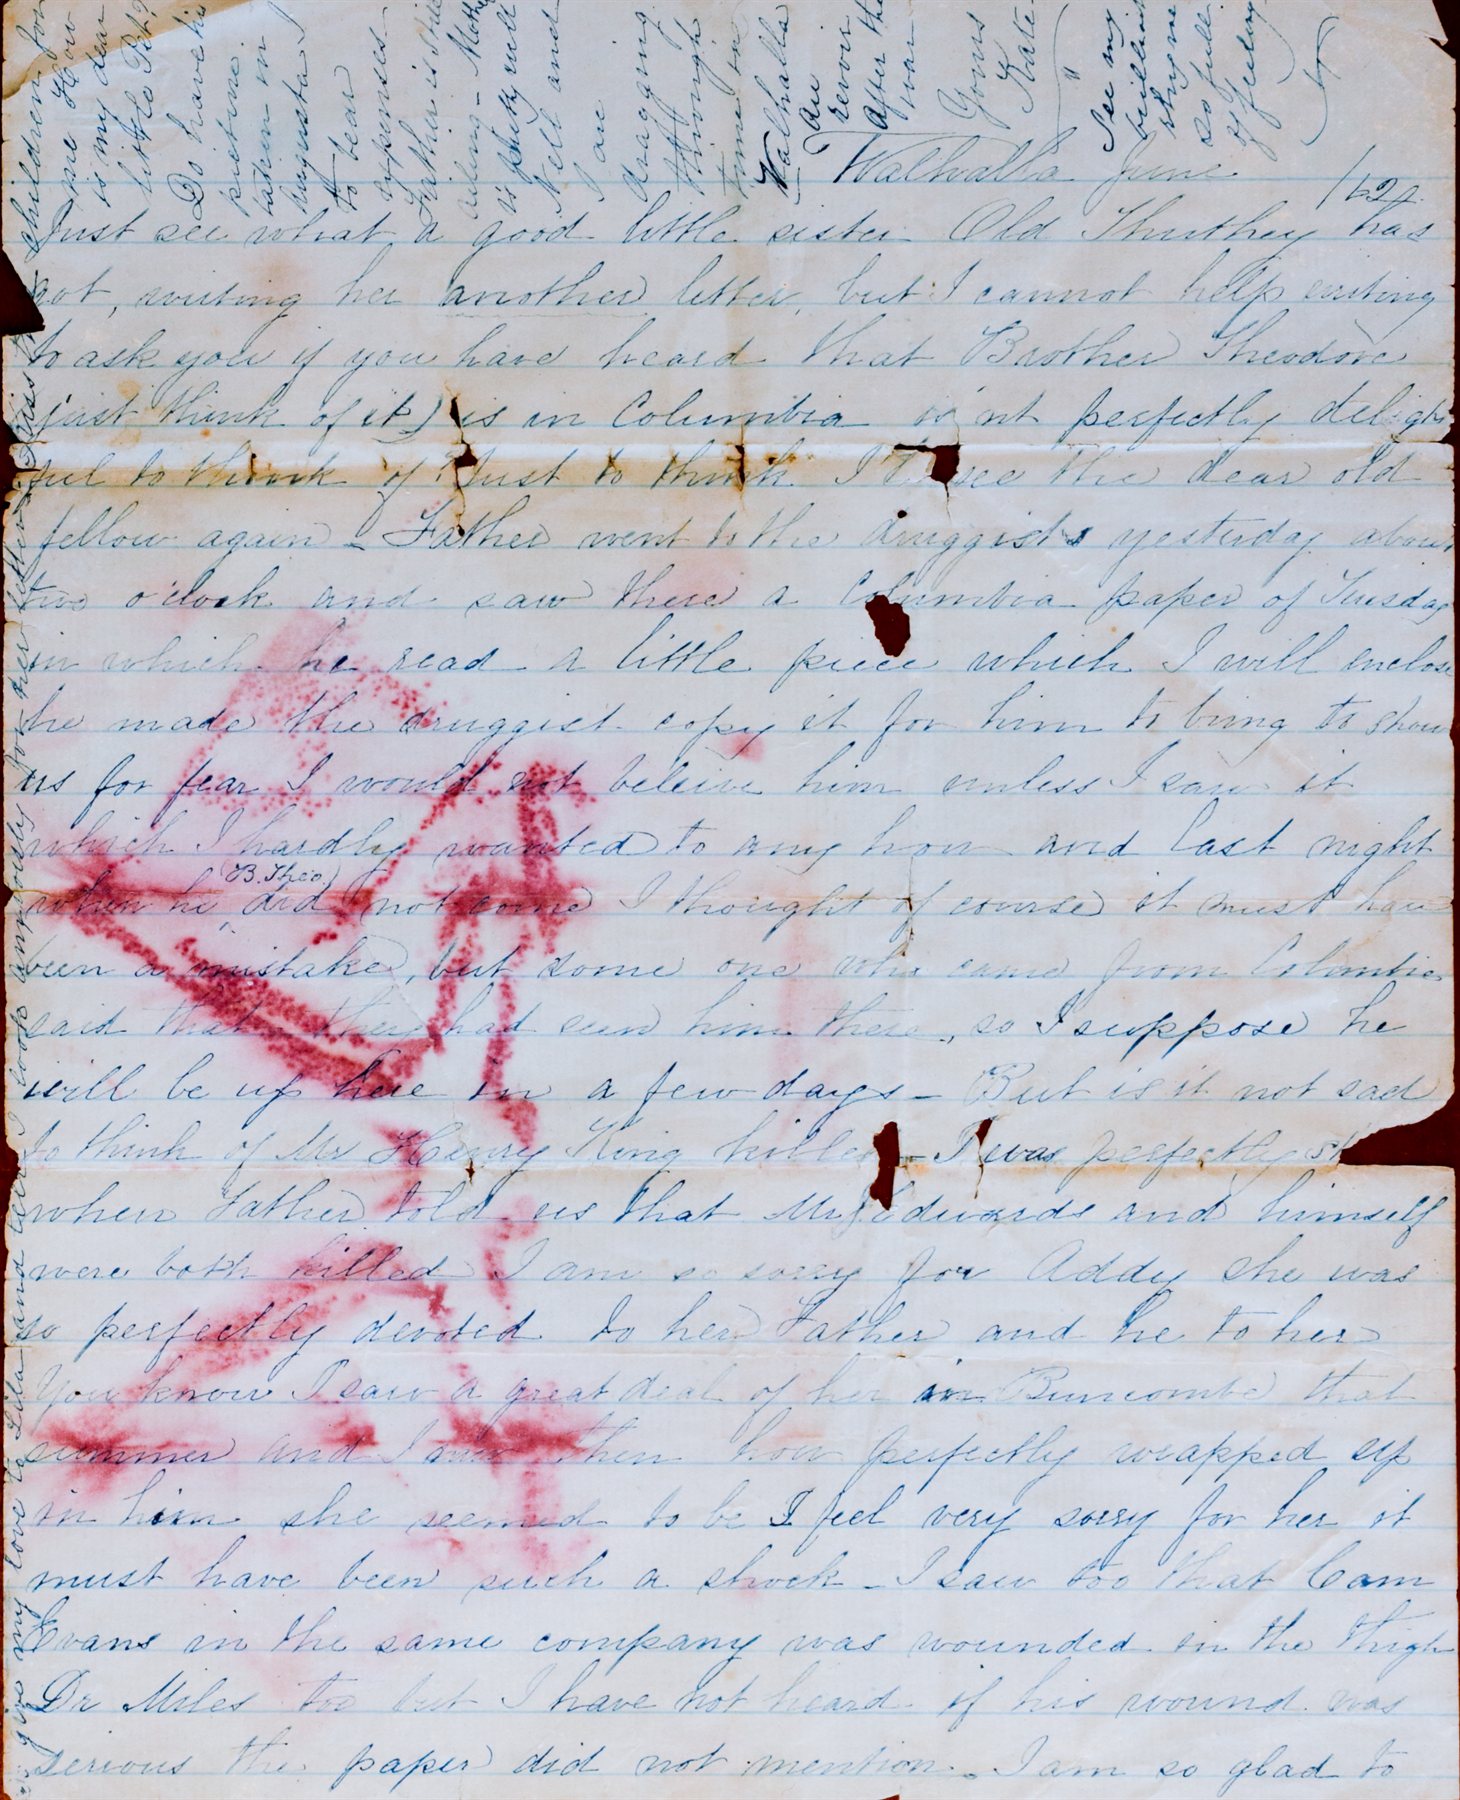 Walhalla June
/62
Just see what a good little sister Old Thuthey has
got, writing her another letter, but I cannot help writing
to ask you if you have heard that Brother Theodore
just think of it) is in Columbia is'nt perfectly deligh
ful to think of? Just to think I'll see the dear old
fellow again – Father went to the druggists yesterday about
two o'clock and saw there a Columbia paper of Tuesday
in which he read a little piece which I will enclose
he made the druggist copy it for him to bring to show
us for fear I would not beleive him unless I saw it
which I hardly wanted to any how and last night
(B. Theo.)
when he did not come I thought of course it must have
been a mistake, but some one who came from Columbia
said that they had seen him there, so I suppose he
will be up here in a few days – But is it not sad
to think of Mr Henry King killed – I was perfectly
when Father told us that Mr Edwards and himself
were both killed I am so sorry for Addy she was
so perfectly devoted to her Father and he to her
You know I saw a great deal of her in Buncombe that
summer and I saw then how perfectly wrapped up
in him she seemed to be I feel very sorry for her it
must have been such a shock – I saw too that Cam
Evans in the same company was wounded in the thigh
Dr Miles too but I have not heard if his wound was
serious the paper did not mention. I am so glad to
give my love to Lila and tell I look anxiously for her letter. Kiss the children for
me How
is my dear
little Pet?
Do have his
picture
taken in
Augusta I
to bear
expenses
Father is still
ailing – Mother
is pretty well
Nell and
I are
dragging
through
time in
Walhalla
Au
revoir
After the
war
Yours
Kate
See my
brilliant
rhyme
so full
of feeling